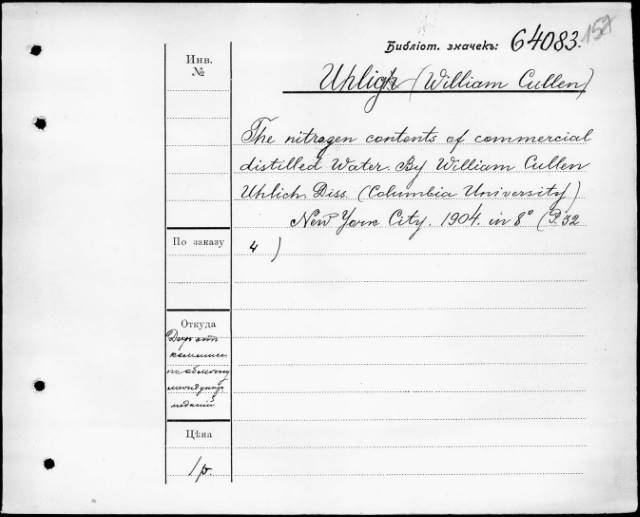 Библіот. значекъ: 64083. 157
Инв.
№
Uhligh (William Cullen)
The nitrogen contents of commercial
distilled Water. By William Cullen
Uhlich. Diss. (Columbia University)
New York City. 1904. in 8° (P. 32
4)
По заказу
Откуда
Даръ отъ
Цѣна
1 р.